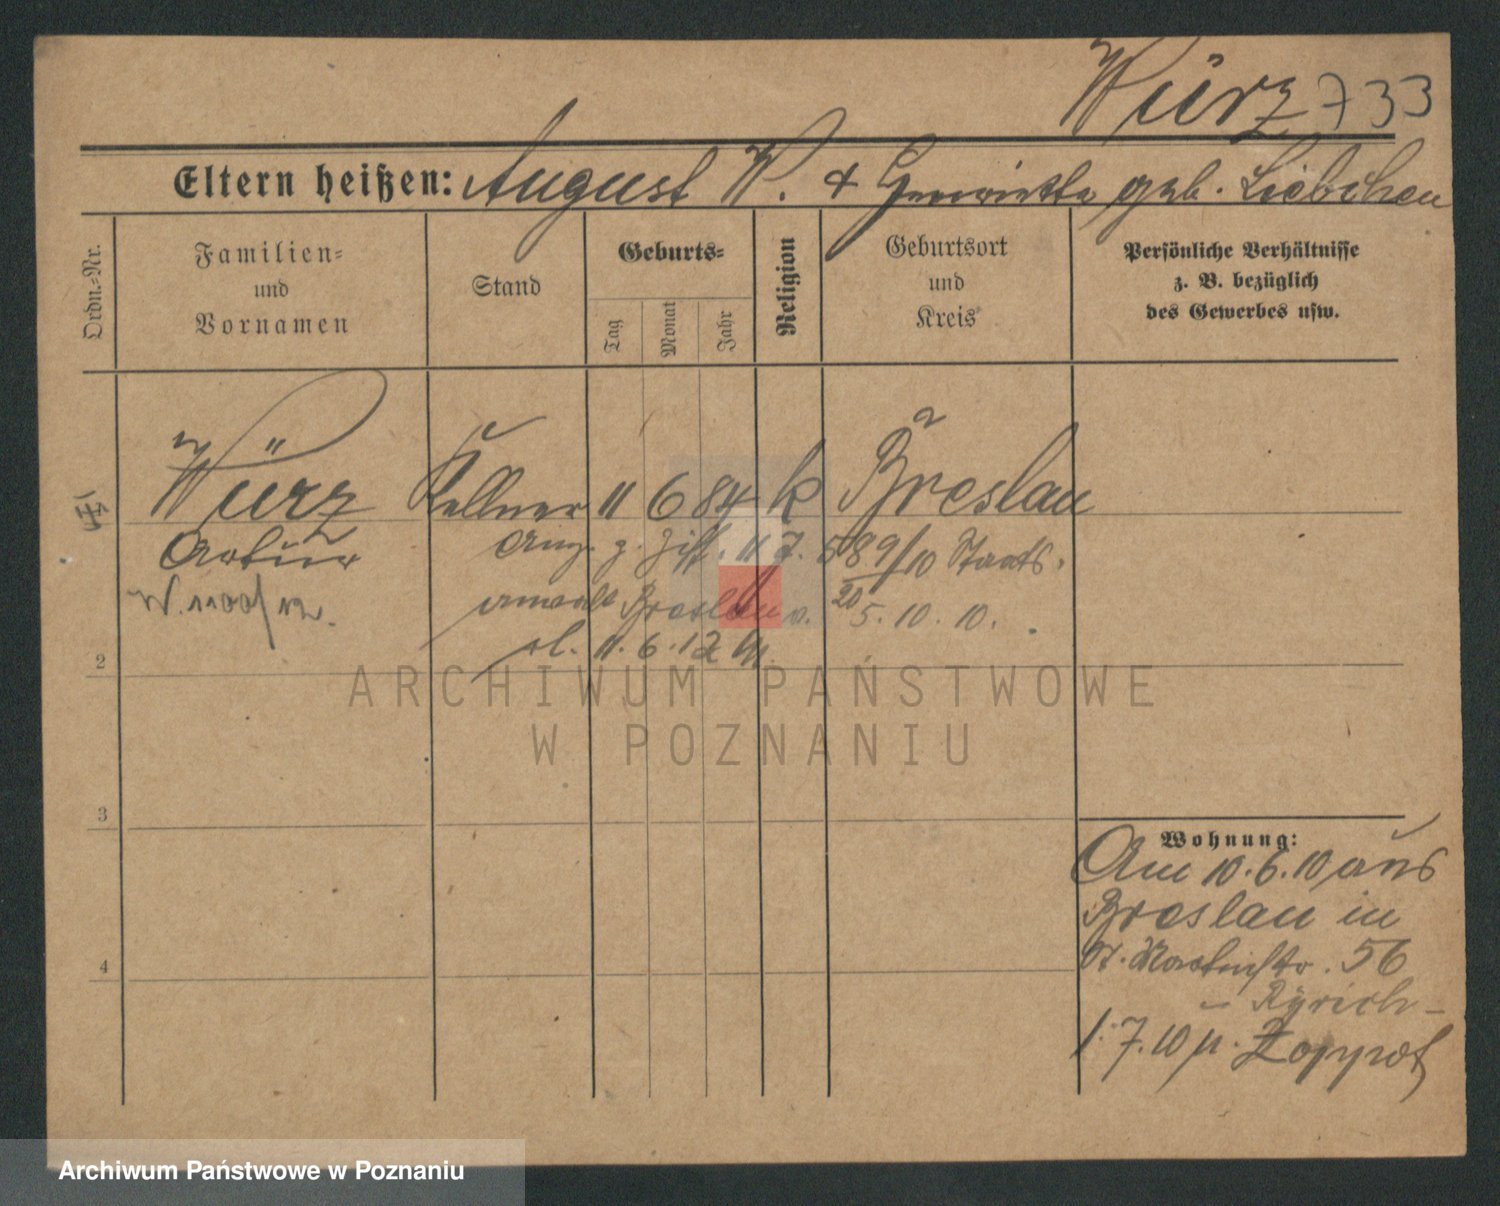 Würz 733
Eltern heißen: August W. & Henriette geb. Liebchen
Ordn.-Nr.
Familien-
und
Vornamen
Stand
Geburts-
Tag
Monat
Jahr
Religion
Geburtsort
und
Kreis
Persönliche Verhältnisse
z. B. bezüglich
des Gewerbes usw.
Würz Kellner 11 6 84 k Breslau
Artur
W. 1100/12.
9/10 Staats-
anwalt Breslau v. 5. 10. 10.
11. 6. 12
2
3
4
Wohnung:
Am 10.6.10 aus
Breslau in
St. Martinstr. 56
1.7.10 n. Zoppot
ARCHIWUM PAŃSTWOWE
W POZNANIU
Archiwum Państwowe w Poznaniu